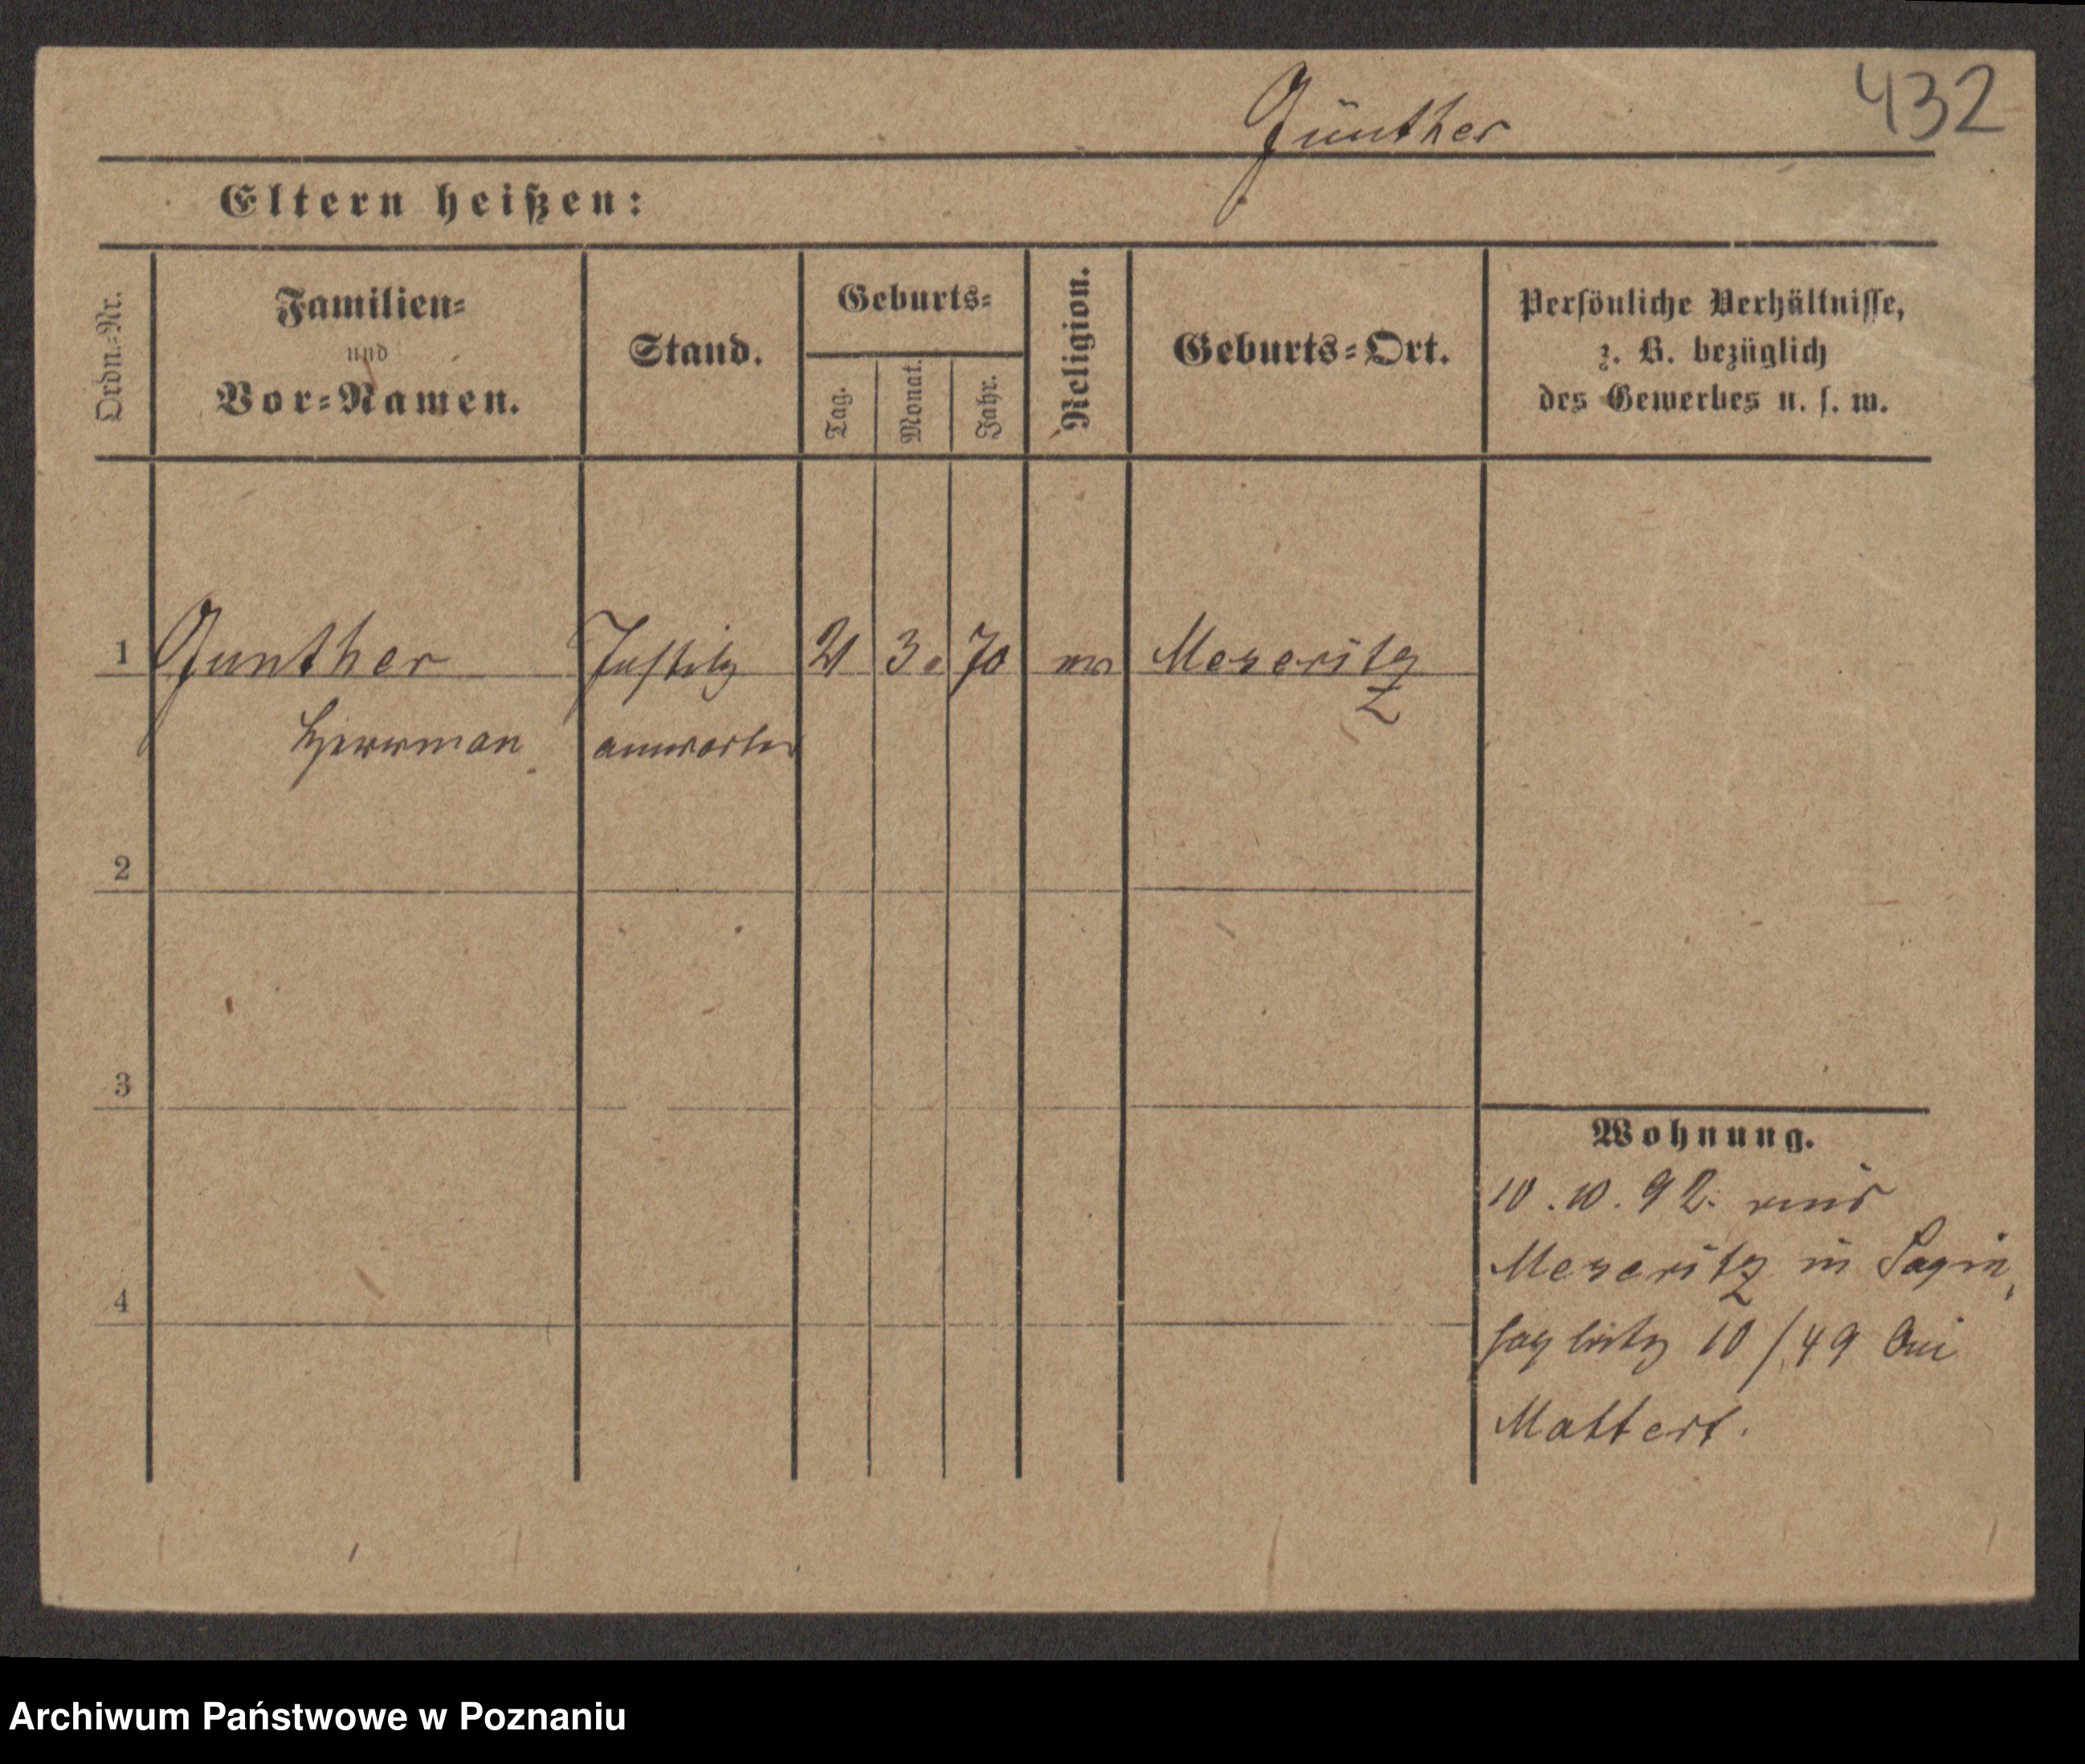 432
Günther
Eltern heißen:
Ordn.-Nr.
Familien-
und
Vor-Namen.
Stand.
Geburts-
Tag.
Monat.
Jahr.
Religion.
Geburts-Ort.
Persönliche Verhältnisse,
z. B. bezüglich
des Gewerbes u. s. w.
1 Gunther Justitz 21 3. 70 Meseritz
Herrman anwarter
2
3
4
Wohnung.
10.10.92. aus
Meseritz in
10/49 bei
Mattert.
Archiwum Państwowe w Poznaniu